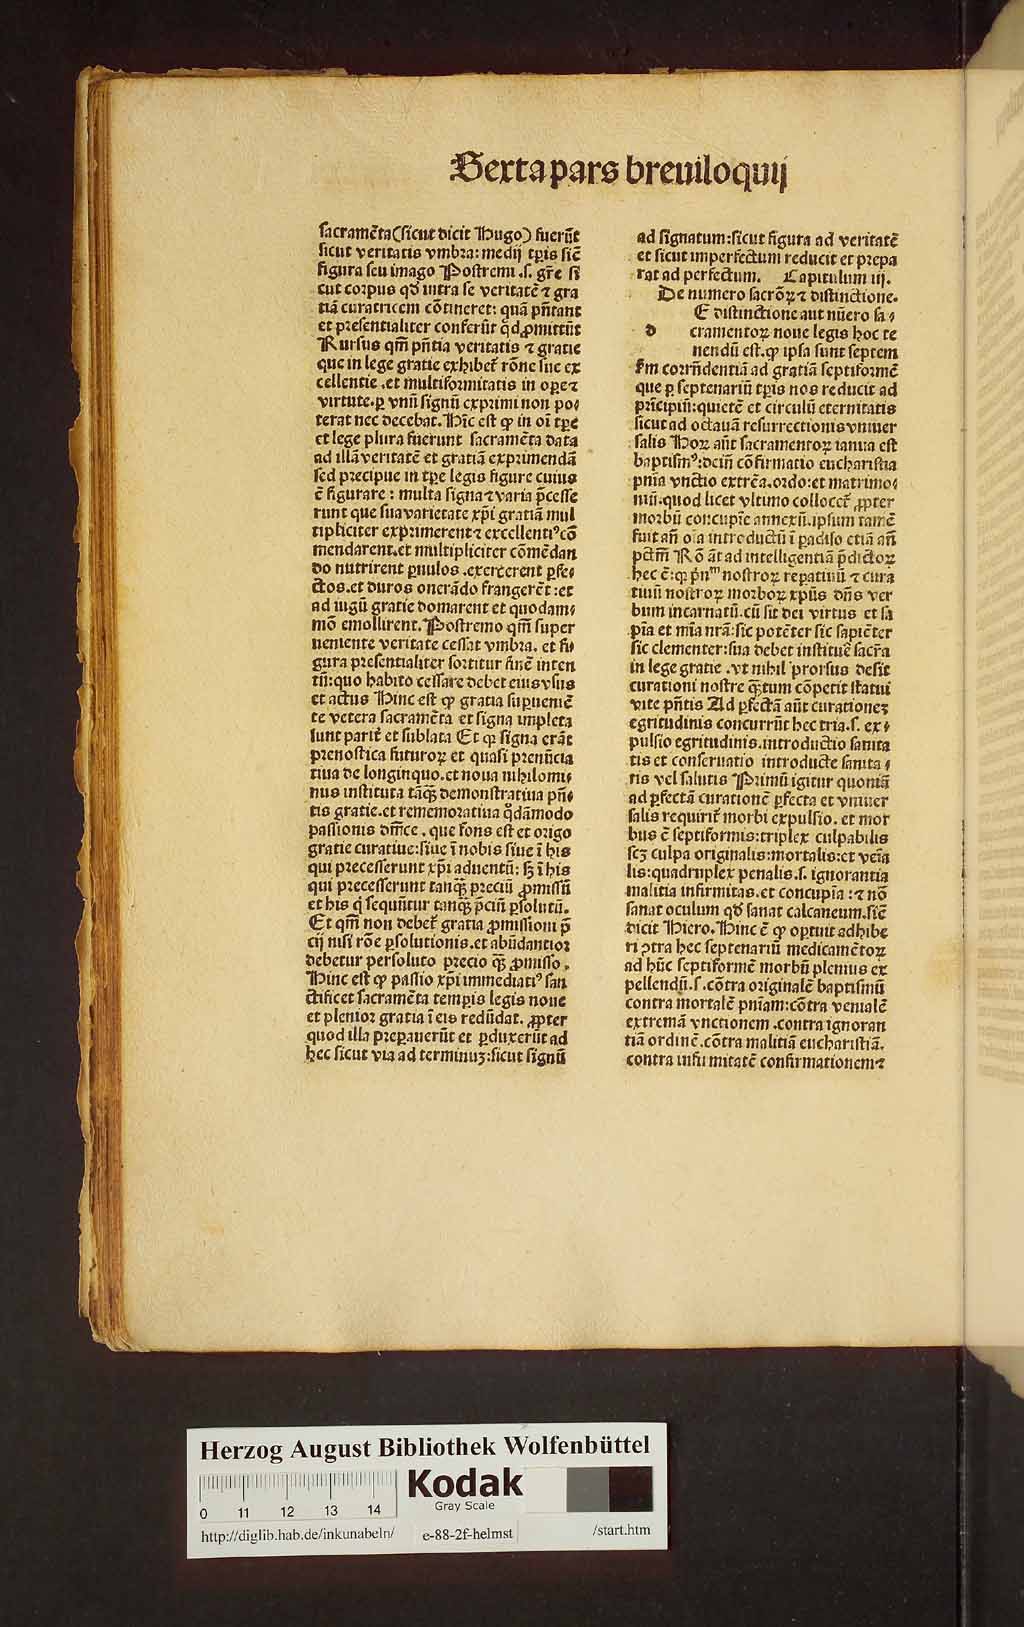 Sexta pars breuiloquij
sacramẽta(sicut dicit Hugo) fuerũt
sicut veritatis vmbra: medij tp̃is siẽ
figura seu imago Postremi .s. gr̃e si
cut corpus qd̃ intra se veritatẽ ⁊ gra
tiã curatricem cõtineret: quã pñtant
et presentialiter conferũt q̃d ꝓmittũt
Rursus qm̃ pñtia veritatis ⁊ gratie
que in lege gratie exhibet᷑ rõne sue ex
cellentie .et multiformitatis in oꝑe ⁊
virtute.ꝑ vnũ signũ exprimi non po⸗
terat nec decebat. Hĩc est ꝙ in oĩ tp̃e
et lege plura fuerunt sacramẽta data
ad illã veritatẽ et gratiã exprimendã
sed precipue in tp̃e legis figure cuius
ẽ figurare : multa signa ⁊ varia p̃cesse
runt que sua varietate xp̃i gratiã mul
tipliciter exprimerent ⁊ excellentiꝰ cõ
mendarent.et multipliciter cõmẽdan
do nutrirent ꝑuulos .exercerent ꝑfe⸗
ctos.et duros onerãdo frangerẽt :et
ad iugũ gratie domarent et quodam⸗
mõ emollirent. Postremo qm̃ super
ueniente veritate cessat vmbra. et fi⸗
gura presentialiter sortitur finẽ inten
tũ:quo habito cessare debet eius vsus
et actus Hinc est ꝙ gratia suꝑueniẽ
te vetera sacramẽta et signa impleta
sunt parit᷑ et sublata Et qꝛ signa erãt
prenostica futuroꝝ et quasi prenũcia
tiua de longinquo.et noua nihilomi⸗
nus instituta tãqꝫ demonstratiua pñ⸗
tis gratie.et rememoratiua q̊dãmodo
passionis dñice . que fons est et origo
gratie curatiue:siue ĩ nobis siue ĩ his
qui precesserunt xp̃i aduentũ: sꝫ ĩ his
qui precesserunt tanqꝫ preciũ ꝓmissũ
et his q̃ sequũtur tanqꝫ p̃ciũ ꝑsolutũ.
Et qm̃ non debet᷑ gratia ꝓmissioni p̃
cij nisi rõe ꝑsolutionis.et abũdantior
debetur persoluto precio qꝫ ꝓmisso .
Hinc est ꝙ passio xp̃i immediatiꝰ san
ctificet sacramẽta temp̃is legis noue
et plenior gratia ĩ eis redũdat. ꝓpter
quod illa preparauerũt et ꝑduxerũt ad
hec sicut via ad terminuꝫ:sicut signũ
ad signatum:sicut figura ad veritatẽ
et sicut imperfectum reducit et prepa
rat ad perfectum. Capitulum iij.
De numero sacroꝝ ⁊ distinctione.
d
E distinctione aut nũero sa⸗
cramentoꝝ noue legis hoc te
nendũ est.ꝙ ipsa sunt septem
s̃m corrñdentiã ad gratiã septiformẽ
que ꝑ septenariũ tp̃is nos reducit ad
prĩcipiũ:quietẽ et circulũ eternitatis
sicut ad octauã resurrectionis vniuer
salis Hoꝝ aũt sacramentoꝝ ianua est
baptismꝰ:deiñ cõfirmatio eucharistia
pñia vnctio extrẽa.ordo:et matrimo⸗
niũ.quod licet vltimo collocet᷑ ꝓpter
morbũ concupĩe annexũ.ipsum tamẽ
fuit añ oĩa introductũ ĩ ꝑadiso etiã añ
pctm̃ Rõ ãt ad intelligentiã p̃dictoꝝ
hec ẽ:ꝙ pñᵐ nostroꝝ repatiuũ ⁊ cura
tiuũ nostroꝝ morboꝝ xp̃us dñs ver
bum incarnatũ.cũ sit dei virtus et sa
pĩa et mĩa nr̃a:sic potẽter sic sapiẽter
sic clementer:sua debet instituẽ sacr̃a
in lege gratie .vt nihil prorsus desit
curationi nostre qꝫtum cõpetit statui
vite pñtis Ad ꝑfectã aũt curationeꝫ
egritudinis concurrũt hec tria.s. ex⸗
pulsio egritudinis.introductio sanita
tis et conseruatio introducte sanita⸗
tis vel salutis Primũ igitur quoniã
ad ꝑfectã curationẽ ꝑfecta et vniuer
salis requirit᷑ morbi expulsio. et mor
bus ẽ septiformis:triplex culpabilis
scꝫ culpa originalis:mortalis:et veĩa
lis:quadruplex penalis.s. ignorantia
malitia infirmitas.et concupĩa :⁊ nõ
sanat oculum qd̃ sanat calcaneum.siẽ
dicit Hiero. Hinc ẽ ꝙ oꝑtuit adhibe
ri ꝯtra hec septenariũ medicamẽtoꝝ
ad hũc septiformẽ morbũ plenius ex
pellendũ.s. cõtra originalẽ baptismũ
contra mortalẽ pñiam:cõtra venialẽ
extremã vnctionem .contra ignoran
tiã ordinẽ.cõtra malitiã eucharistiã.
contra infirmitatẽ confirmationem ⁊
Herzog August Bibliothek Wolfenbüttel
Kodak
Gray Scale
0 11 12 13 14
http://diglib.hab.de/inkunabeln/ e-88-2f-helmst /start.htm